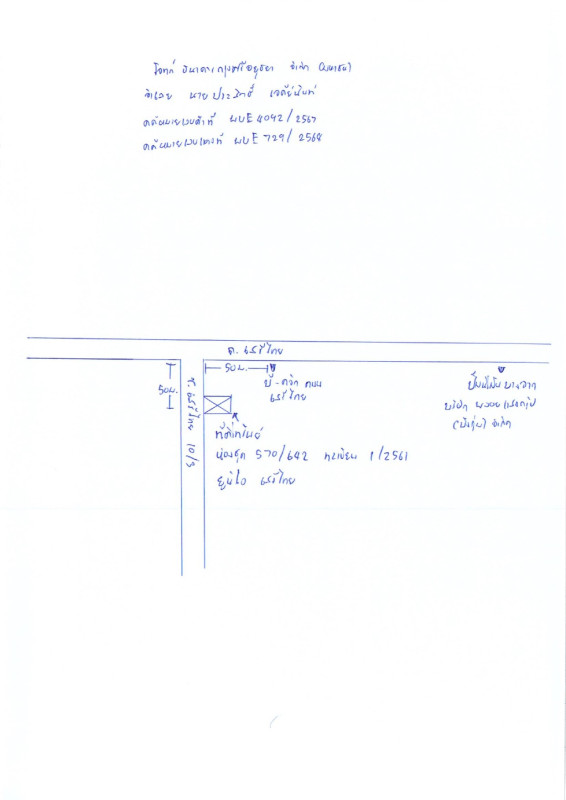 โจทก์ ธนาคารกรุงศรีอยุธยา จำกัด (มหาชน)
จำเลย นาย ประสิทธิ์
คดีหมายเลขดำที่ ผบE 4042/2567
คดีหมายเลขแดงที่ ผบE 729/2568
ถ. เสรีไทย
50ม.
50ม.
ซ. เสรีไทย 10/3
บี-ควิก ถนน
เสรีไทย
ปั๊มน้ำมัน บางจาก
บริษัท
จำกัด
ที่ตั้งทรัพย์
ห้องชุด 570/642 ทะเบียน 1/2561
ยูนิโอ เสรีไทย